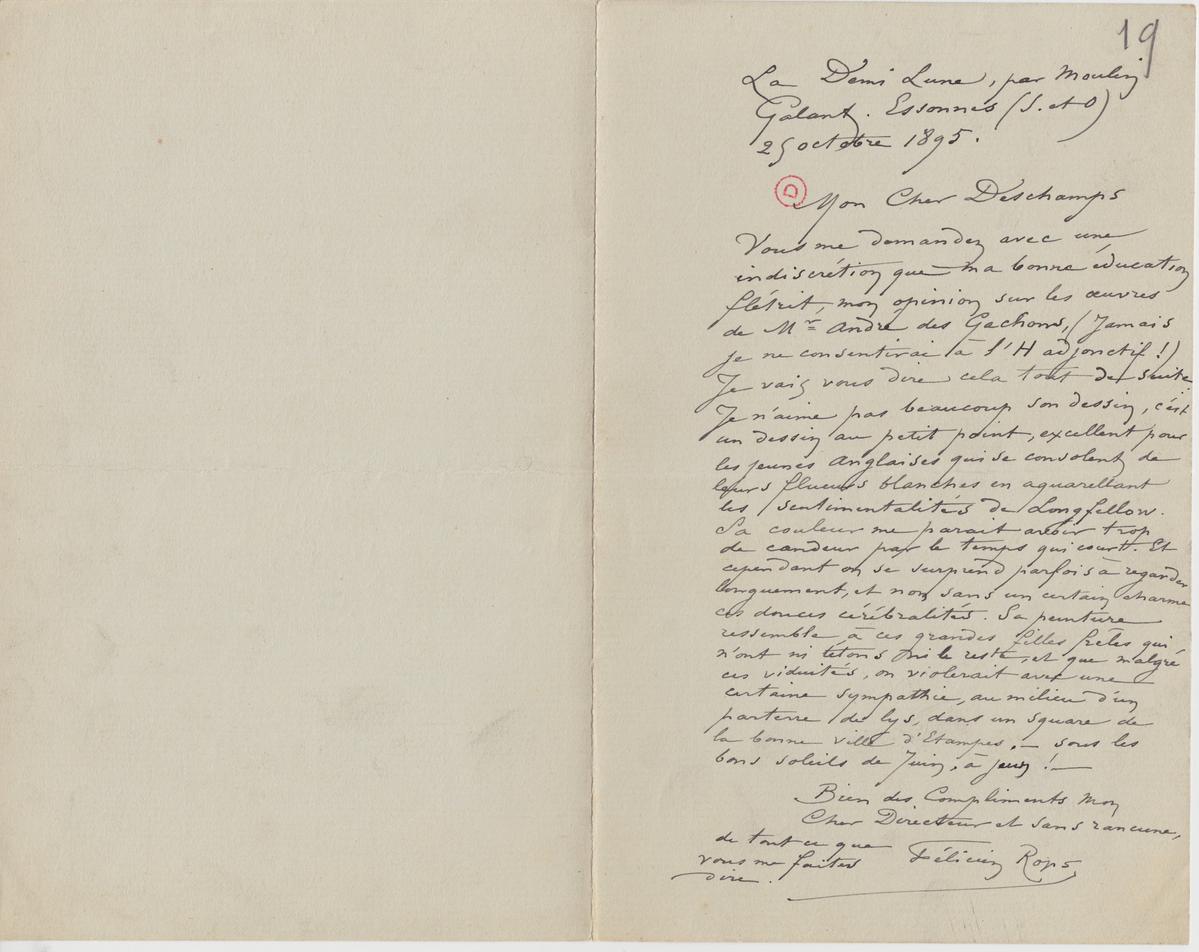 19
La Demi Lune, par Moulin
Galant. Essonnes (S. et O)
25 octobre 1895.
D
Mon Cher Deschamps
Vous me demandez avec une
indiscrétion que ma bonne éducation
flétrit, mon opinion sur les œuvres
de Mr André des Gachons, (Jamais
je ne consentirai à l'H adjonctif !)
Je vais vous dire cela tout de suite.
Je n'aime pas beaucoup son dessin, c'est
un dessin au petit point, excellent pour
les jeunes Anglaises qui se consolent de
leurs flueurs blanches en aquarellant
les sentimentalités de Longfellow.
Sa couleur me parait avoir trop
de candeur par le temps qui court. Et
cependant on se surprend parfois à regarder
longuement, et non sans un certain charme
ces douces cérébralités. Sa peinture
ressemble à ces grandes filles frêles qui
n'ont ni tétons ni le reste, et que malgré
ces viduités, on violerait avec une
certaine sympathie, au milieu d'un
parterre de lys, dans un square de
la bonne ville d'Etampes, — sous les
bons soleils de Juin, à jeun ! —
Bien des Compliments mon
Cher Directeur et sans rancune,
de tout ce que
vous me faites
dire.
Félicien Rops